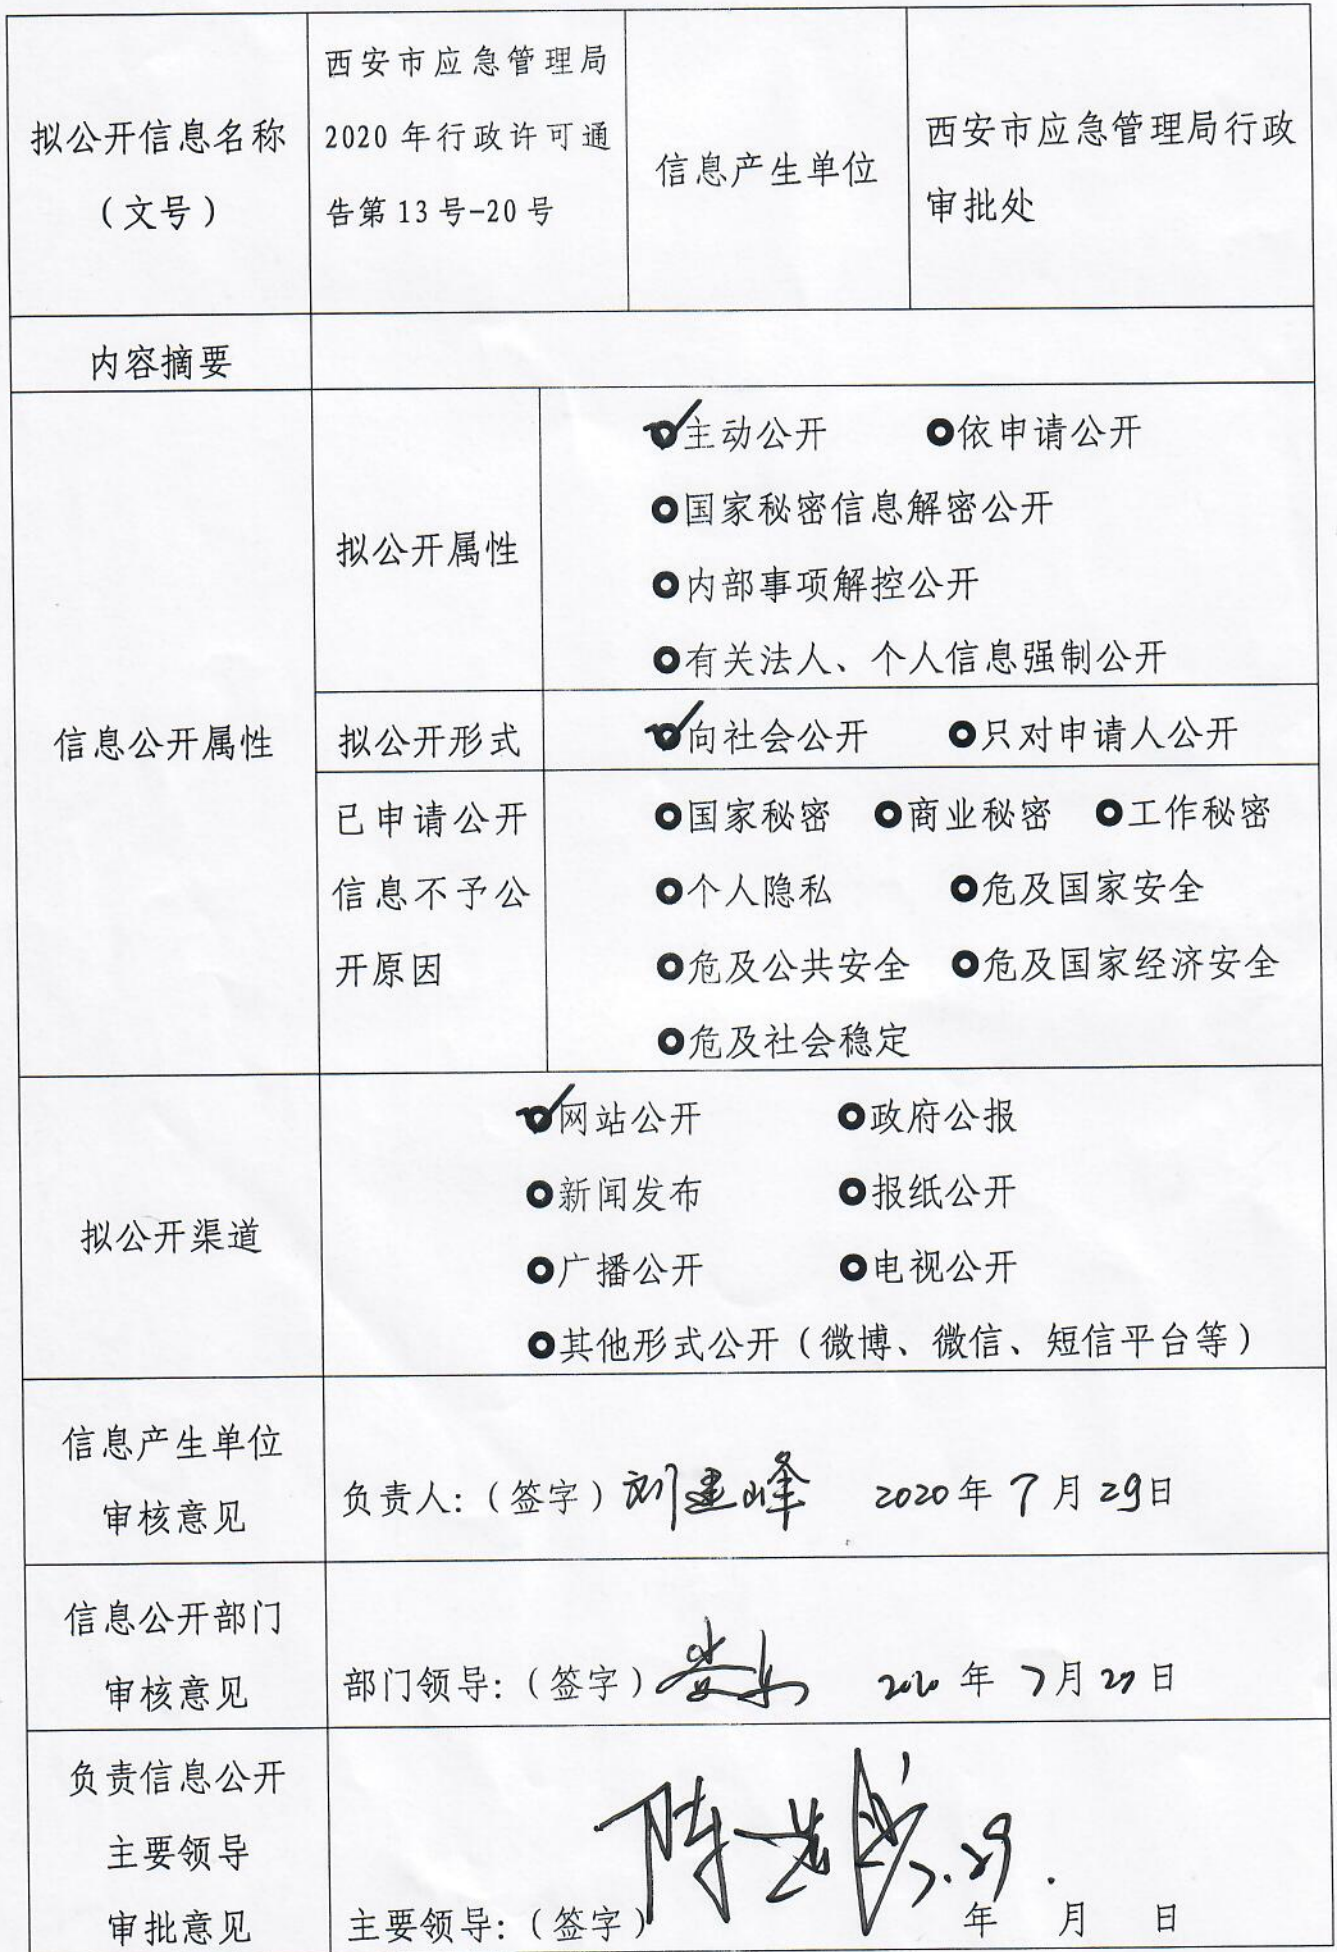 拟公开信息名称
（文号）
西安市应急管理局
2020 年行政许可通
告第 13 号-20 号
信息产生单位
西安市应急管理局行政
审批处
内容摘要
信息公开属性
拟公开属性
主动公开 依申请公开
国家秘密信息解密公开
内部事项解控公开
有关法人、个人信息强制公开
拟公开形式
向社会公开 只对申请人公开
已申请公开
信息不予公
开原因
国家秘密 商业秘密 工作秘密
个人隐私 危及国家安全
危及公共安全 危及国家经济安全
危及社会稳定
拟公开渠道
网站公开 政府公报
新闻发布 报纸公开
广播公开 电视公开
其他形式公开（微博、微信、短信平台等）
信息产生单位
审核意见
负责人:（签字）刘建峰 2020年 7月 29日
信息公开部门
审核意见
部门领导:（签字） 2020 年 7月 日
负责信息公开
主要领导
审批意见
7.29.
主要领导:（签字） 年 月 日